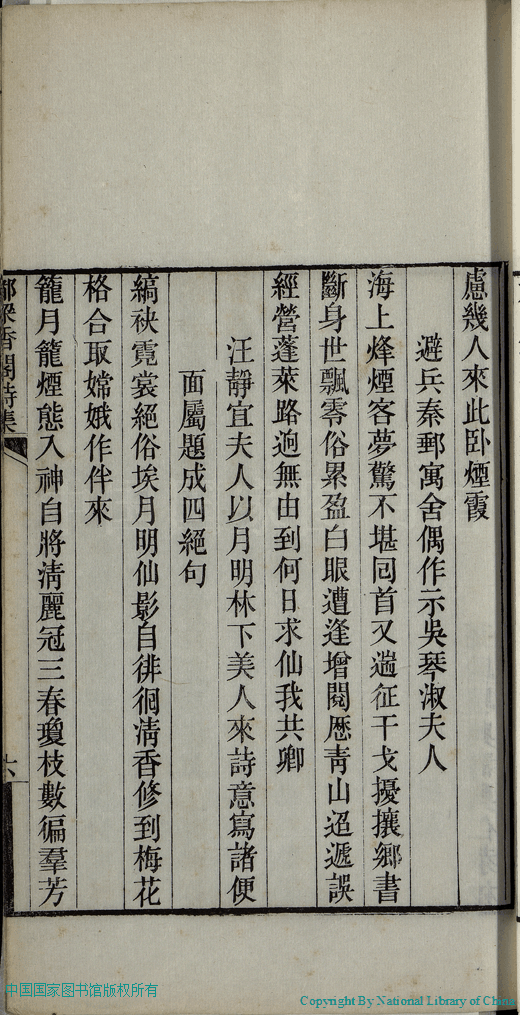 慮幾人來此卧煙霞
避兵秦郵寓舍偶作示吳琴淑夫人
海上烽煙客夢驚不堪囘首又遄征干戈擾攘鄉書
斷身世飄零俗累盈白眼遭逢增閱歷靑山迢遞誤
經營蓬萊路迥無由到何日求仙我共卿
汪靜宜夫人以月明林下美人來詩意寫諸便
面屬題成四絕句
縞袂霓裳絕俗埃月明仙影自徘徊淸香修到梅花
格合取嫦娥作伴來
籠月籠煙態入神自將淸麗冠三春瓊枝數徧羣芳
香閣詩集
六
中国国家图书馆版权所有
Copyright By National Library of China